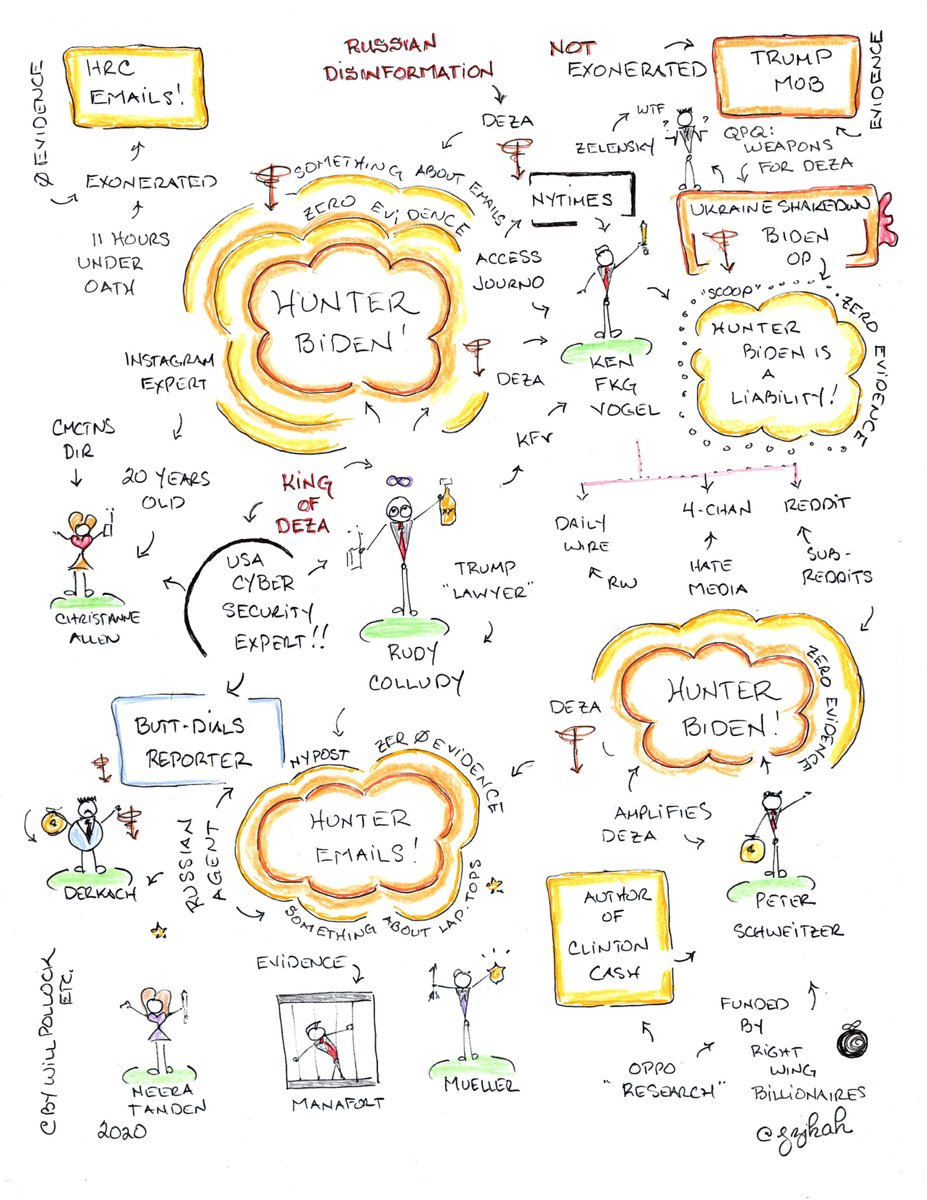 HRC
EMAILS!
Ø EVIDENCE
EXONERATED
11 HOURS
UNDER
OATH
RUSSIAN
DISINFORMATION
DEZA
NOT
EXONERATED
TRUMP
MOB
EVIDENCE
WTF
ZELENSKY
QPQ:
WEAPONS
FOR DEZA
UKRAINE SHAKEDOWN
BIDEN
OP
SOMETHING ABOUT EMAILS
ZERO EVIDENCE
HUNTER
BIDEN!
NYTIMES
ACCESS
JOURNO
DEZA
KEN
FKG
VOGEL
KFV
"SCOOP"
ZERO EVIDENCE
HUNTER
BIDEN IS
A
LIABILITY!
INSTAGRAM
EXPERT
CMCTNS
DIR
20 YEARS
OLD
CHRISTIANNE
ALLEN
KING
OF
DEZA
USA
CYBER
SECURITY
EXPERT!!
TRUMP
"LAWYER"
RUDY
COLLUDY
DAILY
WIRE
RW
4-CHAN
HATE
MEDIA
REDDIT
SUB-
REDDITS
BUTT-DIALS
REPORTER
NYPOST
ZERØ EVIDENCE
HUNTER
EMAILS!
SOMETHING ABOUT LAP-TOPS
RUSSIAN
AGENT
DERKACH
DEZA
HUNTER
BIDEN!
ZERO EVIDENCE
AMPLIFIES
DEZA
PETER
SCHWEITZER
AUTHOR
OF
CLINTON
CASH
OPPO
"RESEARCH"
FUNDED
BY
RIGHT
WING
BILLIONAIRES
EVIDENCE
MANAFORT
MUELLER
NEERA
TANDEN
2020
© BY WILL POLLOCK
ETC.